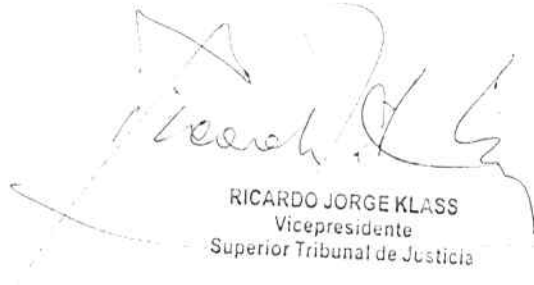 RICARDO JORGE KLASS
Vicepresidente
Superior Tribunal de Justicia